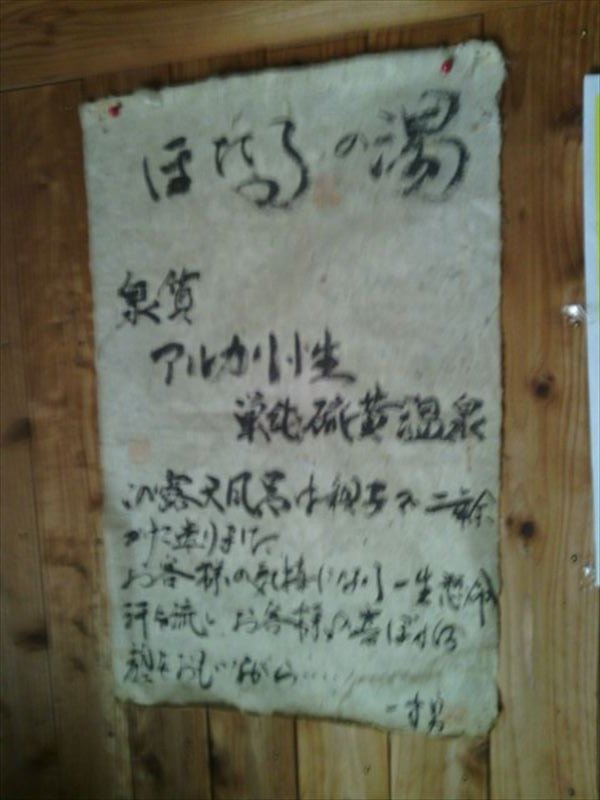 ほたるの湯
泉質
アルカリ性
単純硫黄温泉
この露天風呂は親子で二年余
かけ造りました
お客様の気持になり一生懸命
汗を流しお客様の喜ばれる
顔を思いながら……
一男